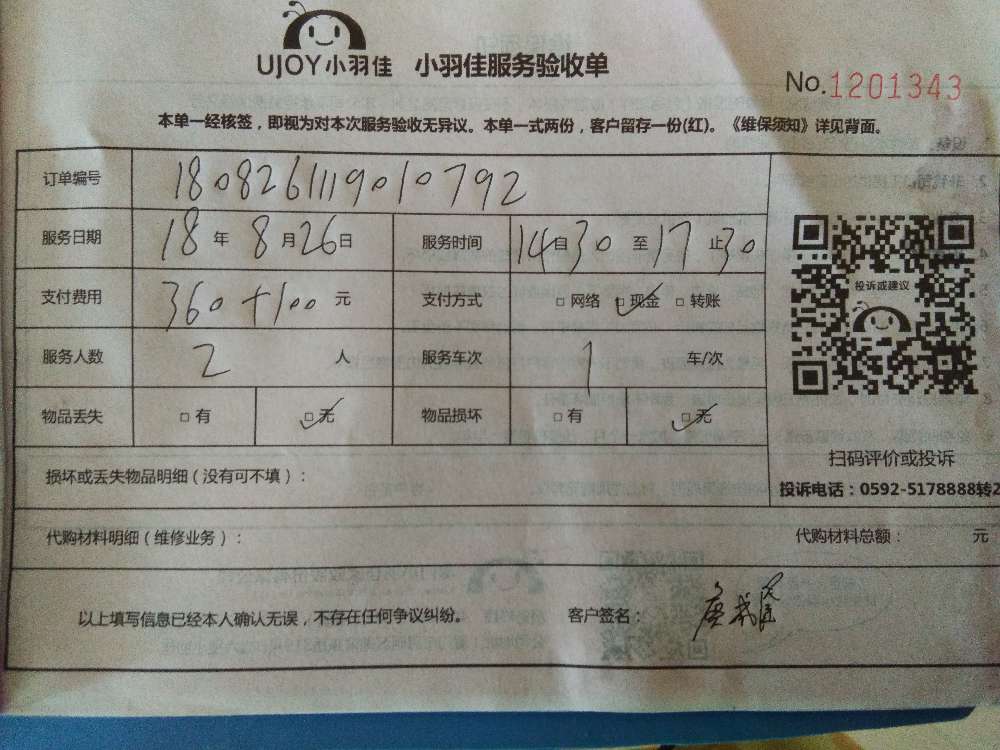 UJOY小羽佳 小羽佳服务验收单
No.1201343
本单一经核签，即视为对本次服务验收无异议。本单一式两份，客户留存一份(红)。《维保须知》详见背面。
订单编号 1808261119010792
服务日期 18年8月26日 服务时间 14自30至17止30
支付费用 360+100元 支付方式 □网络 ☑现金 □转账
投诉或建议
服务人数 2人 服务车次 1车/次
物品丢失 □有 ☑无 物品损坏 □有 ☑无
扫码评价或投诉
损坏或丢失物品明细（没有可不填）：
投诉电话：0592-5178888转2
代购材料明细（维修业务）： 代购材料总额： 元
以上填写信息已经本人确认无误，不存在任何争议纠纷。 客户签名：